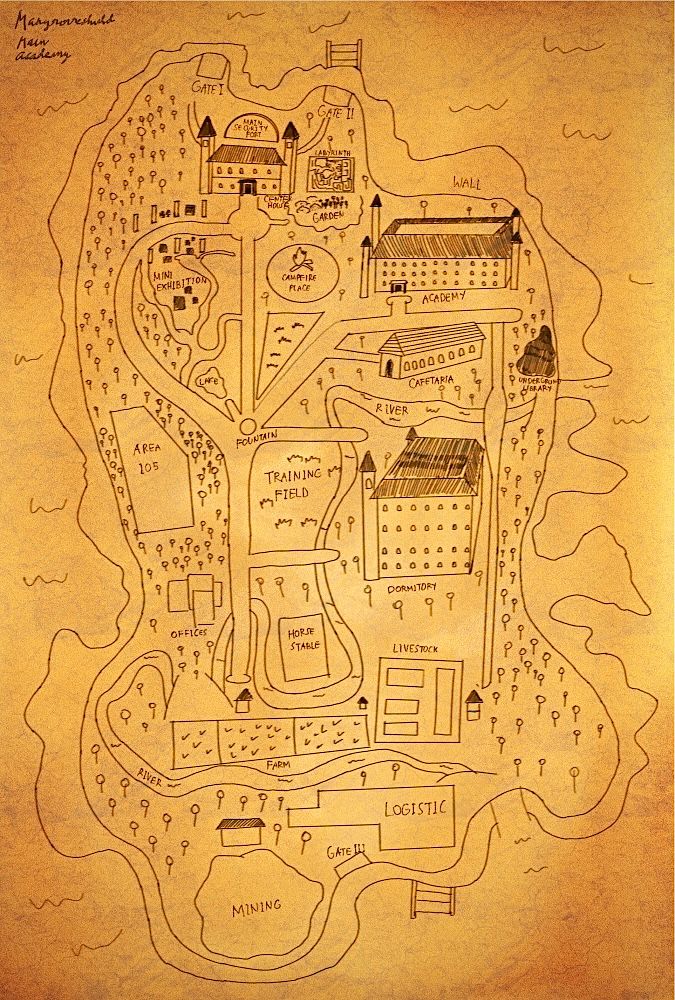 Mangroveshield
Main
Academy
GATE I
GATE II
MAIN
SECURITY
PORT
LABYRINTH
WALL
CENTER
HOUSE
GARDEN
MINI
EXHIBITION
CAMPFIRE
PLACE
ACADEMY
LAKE
CAFETARIA
UNDERGROUND
LIBRARY
RIVER
FOUNTAIN
AREA
105
TRAINING
FIELD
DORMITORY
OFFICES
HORSE
STABLE
LIVESTOCK
FARM
RIVER
LOGISTIC
GATE III
MINING